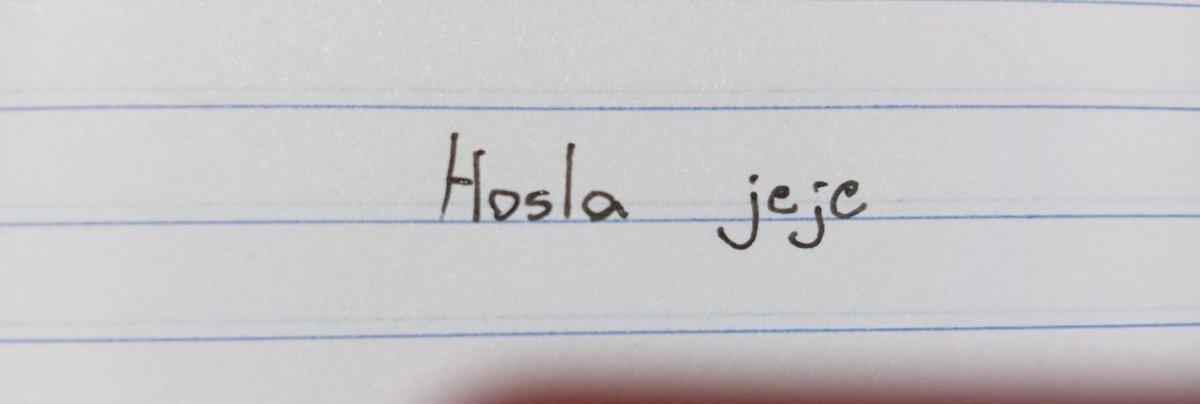 Hosla jeje